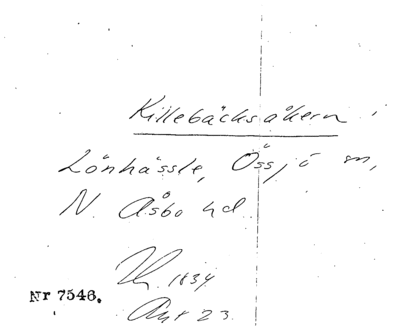 Killebäcksåkern i
Lönhässle, Össjö sn,
N. Åsbo hd
1834
Nr 7546.
23.